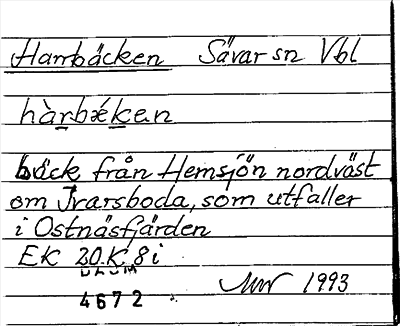 Harrbäcken Sävar sn Vbl
hàrbǽken
bäck från Hemsjön nordväst
om Ivarsboda, som utfaller
i Ostnäsfjärden
EK 20 K 8 i
1993
4672